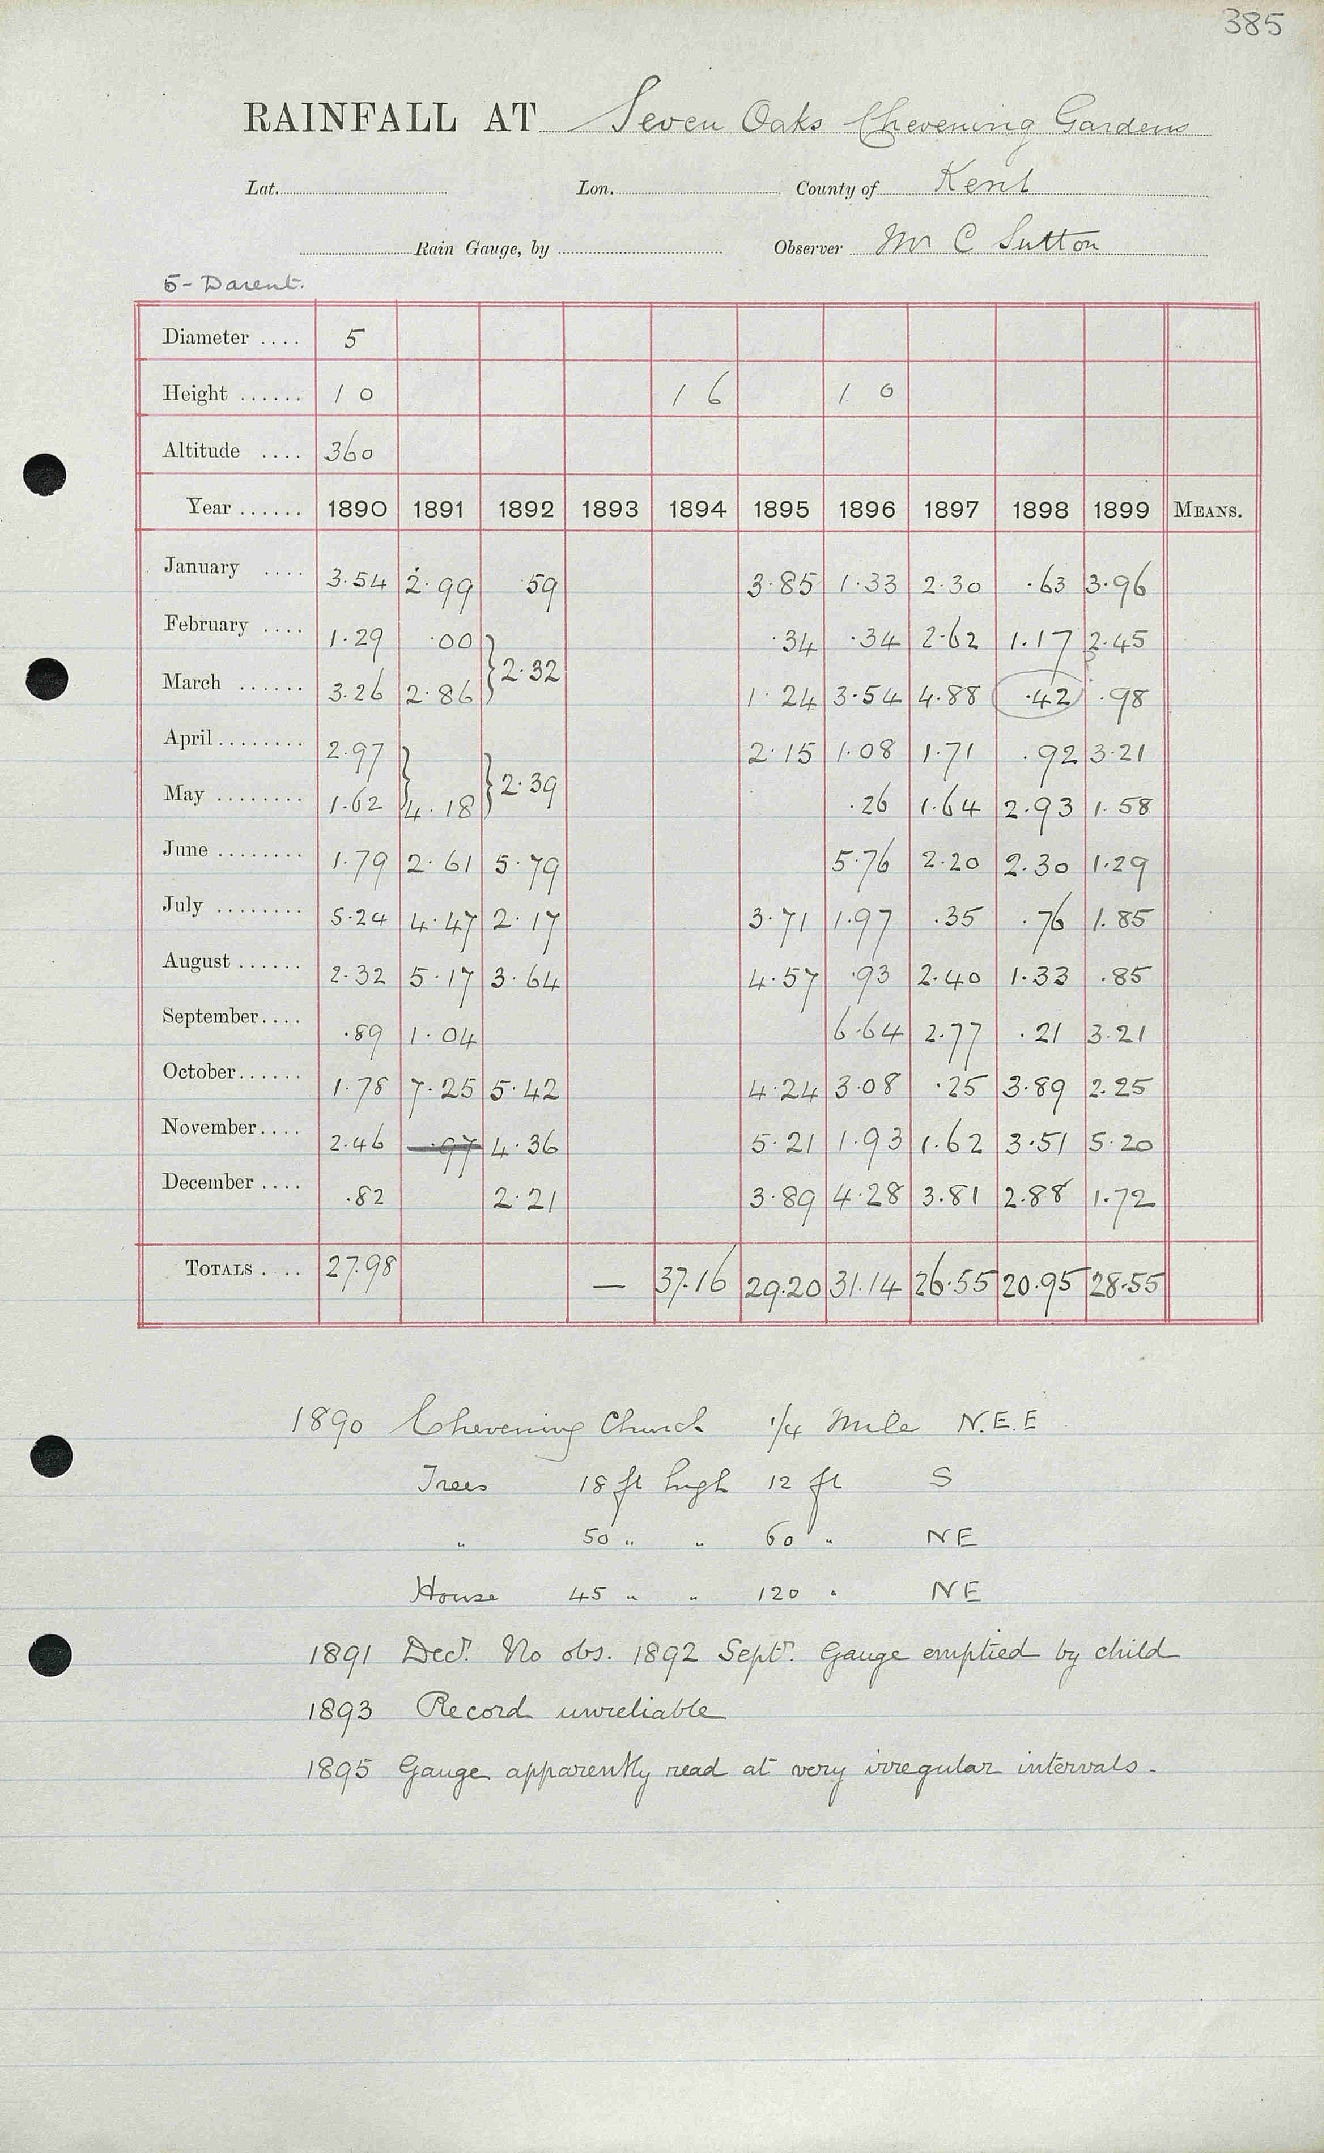 385
RAINFALL AT Seven Oaks Chevening Gardens
Lat. Lon. County of Kent
Rain Gauge, by Observer Mr C Sutton
5 - Darent.
Diameter .... 5
Height ...... 1 0 1 6 1 0
Altitude .... 360
Year ...... 1890 1891 1892 1893 1894 1895 1896 1897 1898 1899 MEANS.
January .... 3.54 2.99 .59 3.85 1.33 2.30 .63 3.96
February .... 1.29 .00 .34 .34 2.62 1.17 2.45
} 2.32
March ...... 3.26 2.86 1.24 3.54 4.88 .42 .98
April ........ 2.97 2.15 1.08 1.71 .92 3.21
} 2.39
May ........ 1.62 } 4.18 .26 1.64 2.93 1.58
June ........ 1.79 2.61 5.79 5.76 2.20 2.30 1.29
July ........ 5.24 4.47 2.17 3.71 1.97 .35 .76 1.85
August ...... 2.32 5.17 3.64 4.57 .93 2.40 1.33 .85
September .... .89 1.04 6.64 2.77 .21 3.21
October ...... 1.78 7.25 5.42 4.24 3.08 .25 3.89 2.25
November .... 2.46 .97 4.36 5.21 1.93 1.62 3.51 5.20
December .... .82 2.21 3.89 4.28 3.81 2.88 1.72
TOTALS .... 27.98 — 37.16 29.20 31.14 26.55 20.95 28.55
1890 Chevening Church 1/4 Mile N.E.E
Trees 18 ft high 12 ft S
" 50 " " 60 " NE
House 45 " " 120 " NE
1891 Decr. No obs. 1892 Septr. Gauge emptied by child
1893 Record unreliable
1895 Gauge apparently read at very irregular intervals.